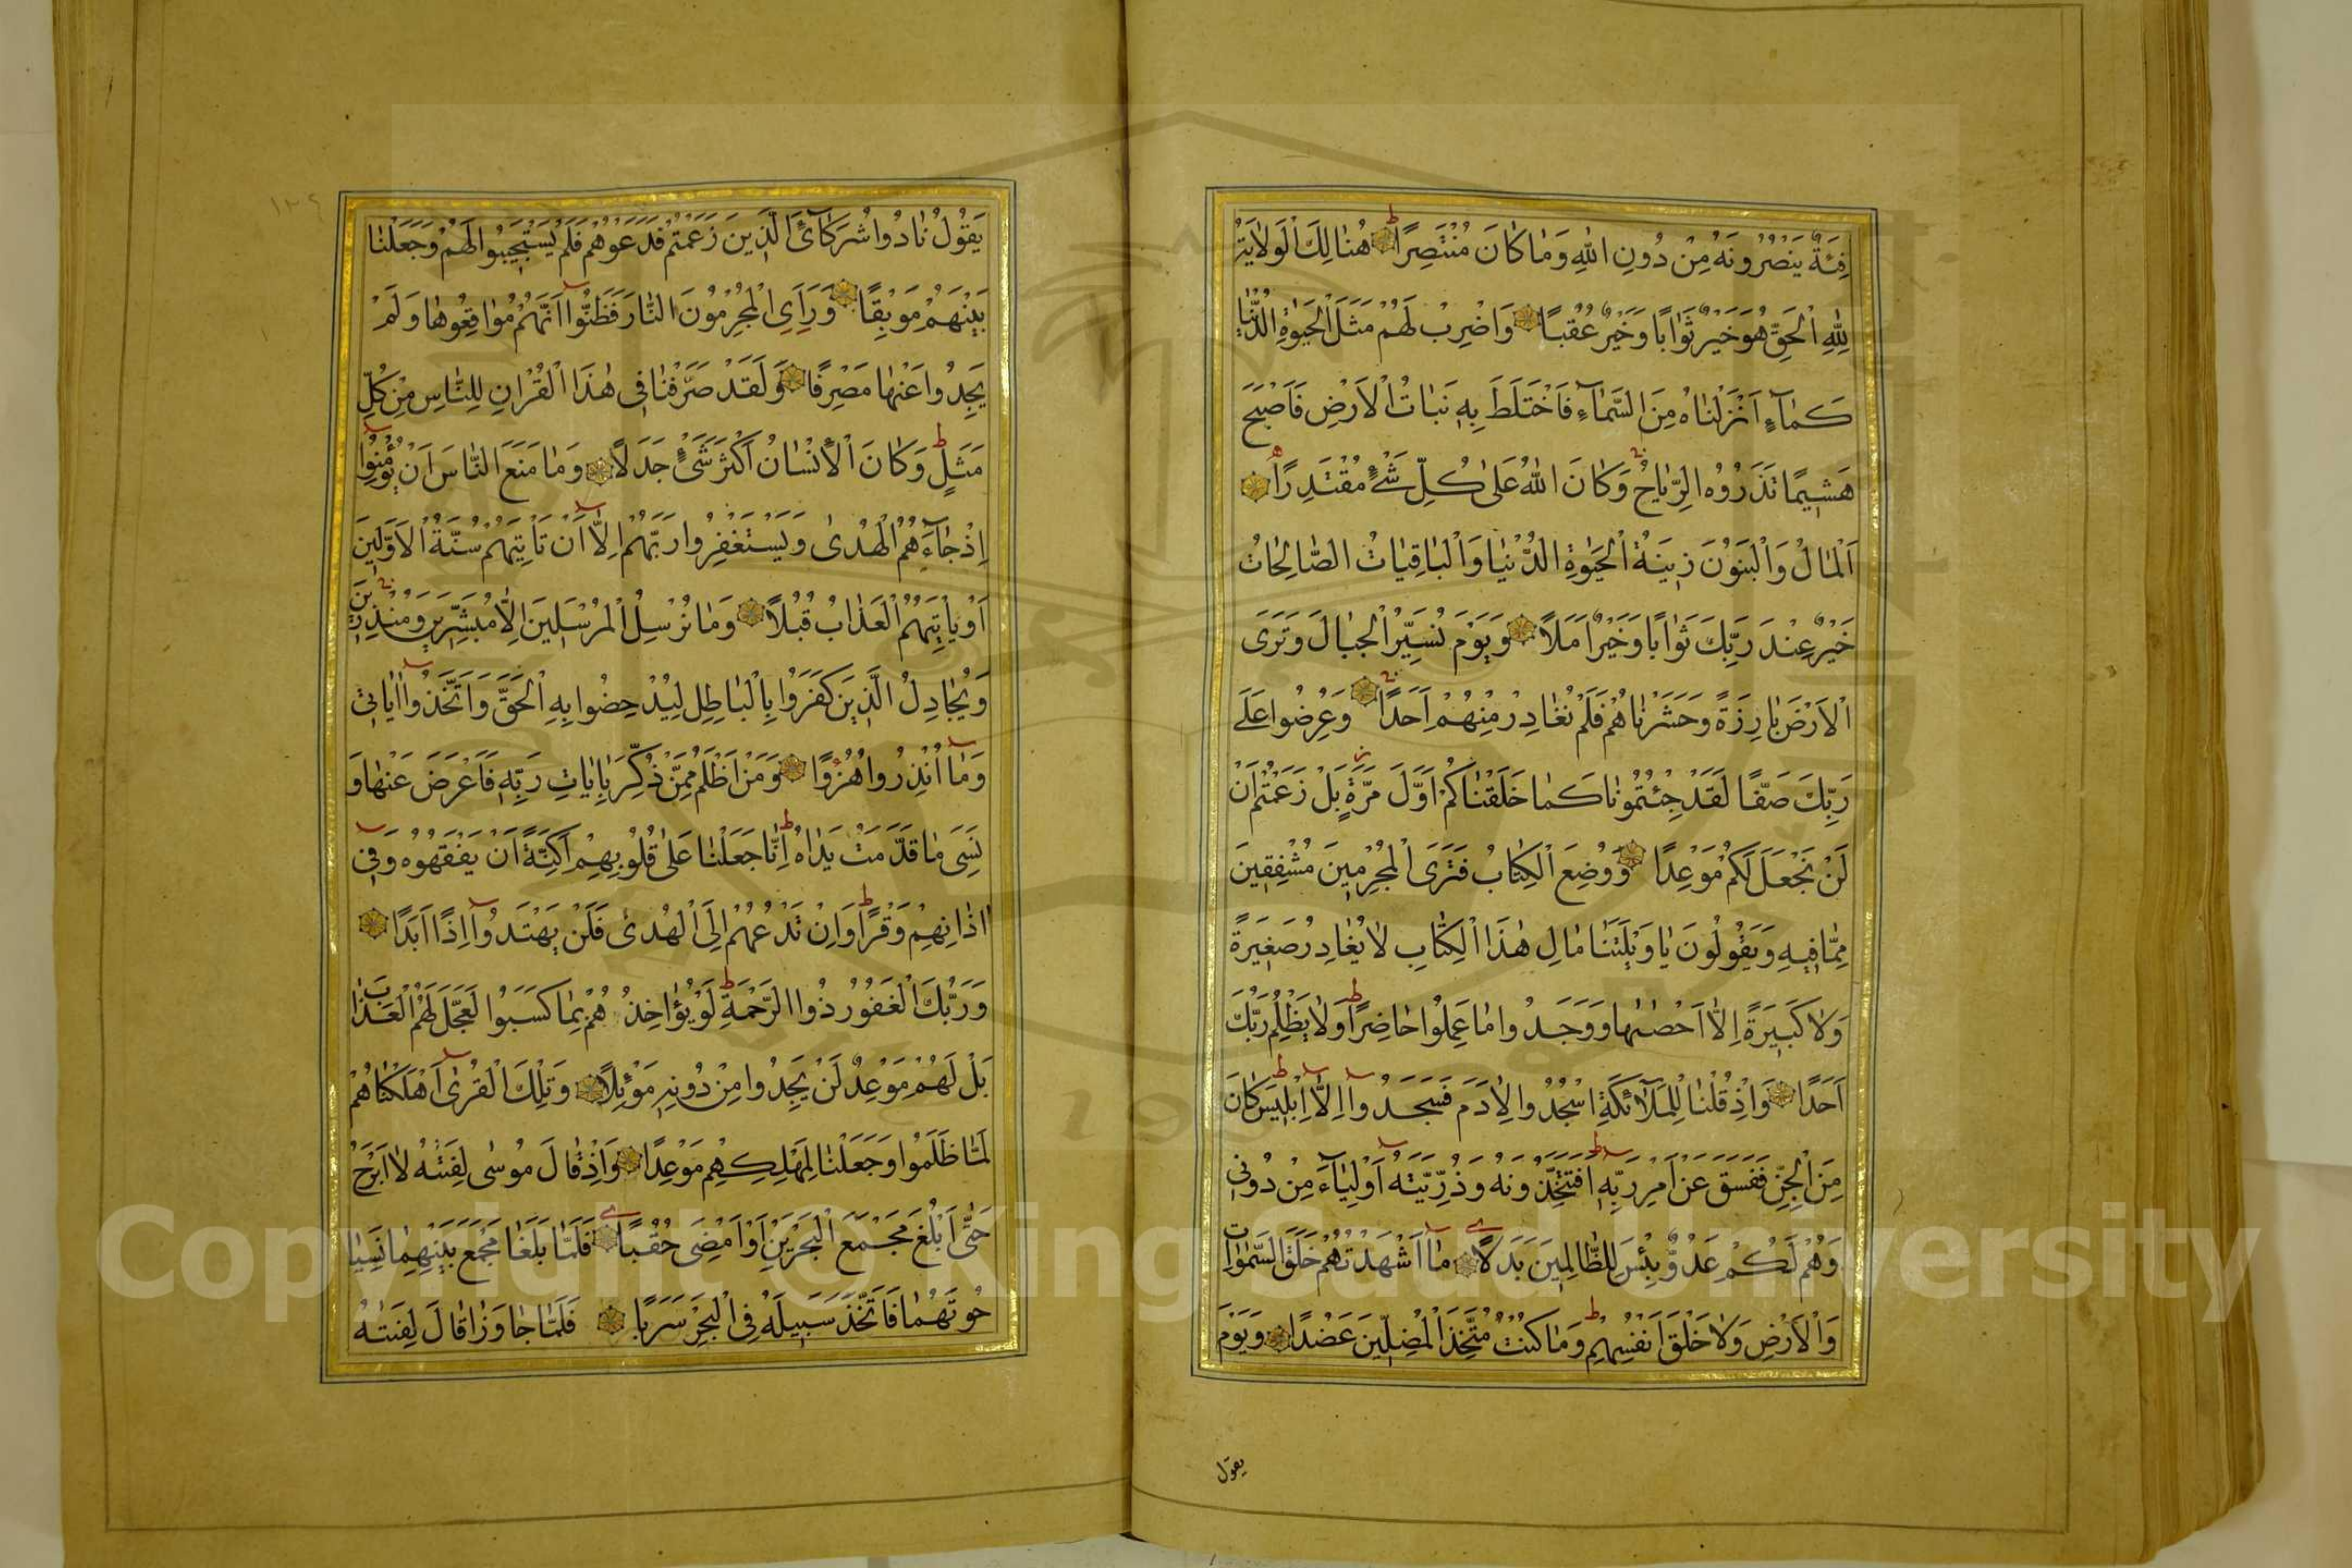 فِئَةٌ يَنْصُرُونَهُ مِنْ دُونِ اللهِ وَمَا كَانَ مُنْتَصِرًا هُنَالِكَ الْوَلَايَةُ
لِلّٰهِ الْحَقِّ هُوَ خَيْرٌ ثَوَابًا وَخَيْرٌ عُقْبًا وَاضْرِبْ لَهُمْ مَثَلَ الْحَيٰوةِ الدُّنْيَا
كَمَآءٍ اَنْزَلْنَاهُ مِنَ السَّمَآءِ فَاخْتَلَطَ بِهِ نَبَاتُ الْاَرْضِ فَاَصْبَحَ
هَشِيمًا تَذْرُوهُ الرِّيَاحُ وَكَانَ اللهُ عَلٰى كُلِّ شَيْءٍ مُقْتَدِرًا
اَلْمَالُ وَالْبَنُونَ زِينَةُ الْحَيٰوةِ الدُّنْيَا وَالْبَاقِيَاتُ الصَّالِحَاتُ
خَيْرٌ عِنْدَ رَبِّكَ ثَوَابًا وَخَيْرٌ اَمَلًا وَيَوْمَ نُسَيِّرُ الْجِبَالَ وَتَرَى
الْاَرْضَ بَارِزَةً وَحَشَرْنَاهُمْ فَلَمْ نُغَادِرْ مِنْهُمْ اَحَدًا وَعُرِضُوا عَلَى
رَبِّكَ صَفًّا لَقَدْ جِئْتُمُونَا كَمَا خَلَقْنَاكُمْ اَوَّلَ مَرَّةٍ بَلْ زَعَمْتُمْ اَنْ
لَنْ نَجْعَلَ لَكُمْ مَوْعِدًا وَوُضِعَ الْكِتَابُ فَتَرَى الْمُجْرِمِينَ مُشْفِقِينَ
مِمَّا فِيهِ وَيَقُولُونَ يَا وَيْلَتَنَا مَالِ هٰذَا الْكِتَابِ لَا يُغَادِرُ صَغِيرَةً
وَلَا كَبِيرَةً اِلَّا اَحْصٰيهَا وَوَجَدُوا مَا عَمِلُوا حَاضِرًا وَلَا يَظْلِمُ رَبُّكَ
اَحَدًا وَاِذْ قُلْنَا لِلْمَلٰٓائِكَةِ اسْجُدُوا لِاٰدَمَ فَسَجَدُوا اِلَّا اِبْلِيسَ كَانَ
مِنَ الْجِنِّ فَفَسَقَ عَنْ اَمْرِ رَبِّهِ اَفَتَتَّخِذُونَهُ وَذُرِّيَّتَهُ اَوْلِيَآءَ مِنْ دُونِي
وَهُمْ لَكُمْ عَدُوٌّ بِئْسَ لِلظَّالِمِينَ بَدَلًا مَا اَشْهَدْتُهُمْ خَلْقَ السَّمٰوَاتِ
وَالْاَرْضِ وَلَا خَلْقَ اَنْفُسِهِمْ وَمَا كُنْتُ مُتَّخِذَ الْمُضِلِّينَ عَضُدًا وَيَوْمَ
يقول
١٣٤
يَقُولُ نَادُوا شُرَكَآئِيَ الَّذِينَ زَعَمْتُمْ فَدَعَوْهُمْ فَلَمْ يَسْتَجِيبُوا لَهُمْ وَجَعَلْنَا
بَيْنَهُمْ مَوْبِقًا وَرَاَى الْمُجْرِمُونَ النَّارَ فَظَنُّوا اَنَّهُمْ مُوَاقِعُوهَا وَلَمْ
يَجِدُوا عَنْهَا مَصْرِفًا وَلَقَدْ صَرَّفْنَا فِى هٰذَا الْقُرْاٰنِ لِلنَّاسِ مِنْ كُلِّ
مَثَلٍ وَكَانَ الْاِنْسَانُ اَكْثَرَ شَىْءٍ جَدَلًا وَمَا مَنَعَ النَّاسَ اَنْ يُؤْمِنُوا
اِذْ جَآءَهُمُ الْهُدٰى وَيَسْتَغْفِرُوا رَبَّهُمْ اِلَّا اَنْ تَاْتِيَهُمْ سُنَّةُ الْاَوَّلِينَ
اَوْ يَاْتِيَهُمُ الْعَذَابُ قُبُلًا وَمَا نُرْسِلُ الْمُرْسَلِينَ اِلَّا مُبَشِّرِينَ وَمُنْذِرِينَ
وَيُجَادِلُ الَّذِينَ كَفَرُوا بِالْبَاطِلِ لِيُدْحِضُوا بِهِ الْحَقَّ وَاتَّخَذُوا اٰيَاتِى
وَمَا اُنْذِرُوا هُزُوًا وَمَنْ اَظْلَمُ مِمَّنْ ذُكِّرَ بِاٰيَاتِ رَبِّهِ فَاَعْرَضَ عَنْهَا وَ
نَسِىَ مَا قَدَّمَتْ يَدَاهُ اِنَّا جَعَلْنَا عَلٰى قُلُوبِهِمْ اَكِنَّةً اَنْ يَفْقَهُوهُ وَفِى
اٰذَانِهِمْ وَقْرًا وَاِنْ تَدْعُهُمْ اِلَى الْهُدٰى فَلَنْ يَهْتَدُوا اِذًا اَبَدًا
وَرَبُّكَ الْغَفُورُ ذُوا الرَّحْمَةِ لَوْ يُؤَاخِذُهُمْ بِمَا كَسَبُوا لَعَجَّلَ لَهُمُ الْعَذَابَ
بَلْ لَهُمْ مَوْعِدٌ لَنْ يَجِدُوا مِنْ دُونِهِ مَوْئِلًا وَتِلْكَ الْقُرٰى اَهْلَكْنَاهُمْ
لَمَّا ظَلَمُوا وَجَعَلْنَا لِمَهْلِكِهِمْ مَوْعِدًا وَاِذْ قَالَ مُوسٰى لِفَتٰيهُ لَا اَبْرَحُ
حَتّٰى اَبْلُغَ مَجْمَعَ الْبَحْرَيْنِ اَوْ اَمْضِىَ حُقُبًا فَلَمَّا بَلَغَا مَجْمَعَ بَيْنِهِمَا نَسِيَا
حُوتَهُمَا فَاتَّخَذَ سَبِيلَهُ فِى الْبَحْرِ سَرَبًا فَلَمَّا جَاوَزَا قَالَ لِفَتٰيهُ
Copyright © King Saud University